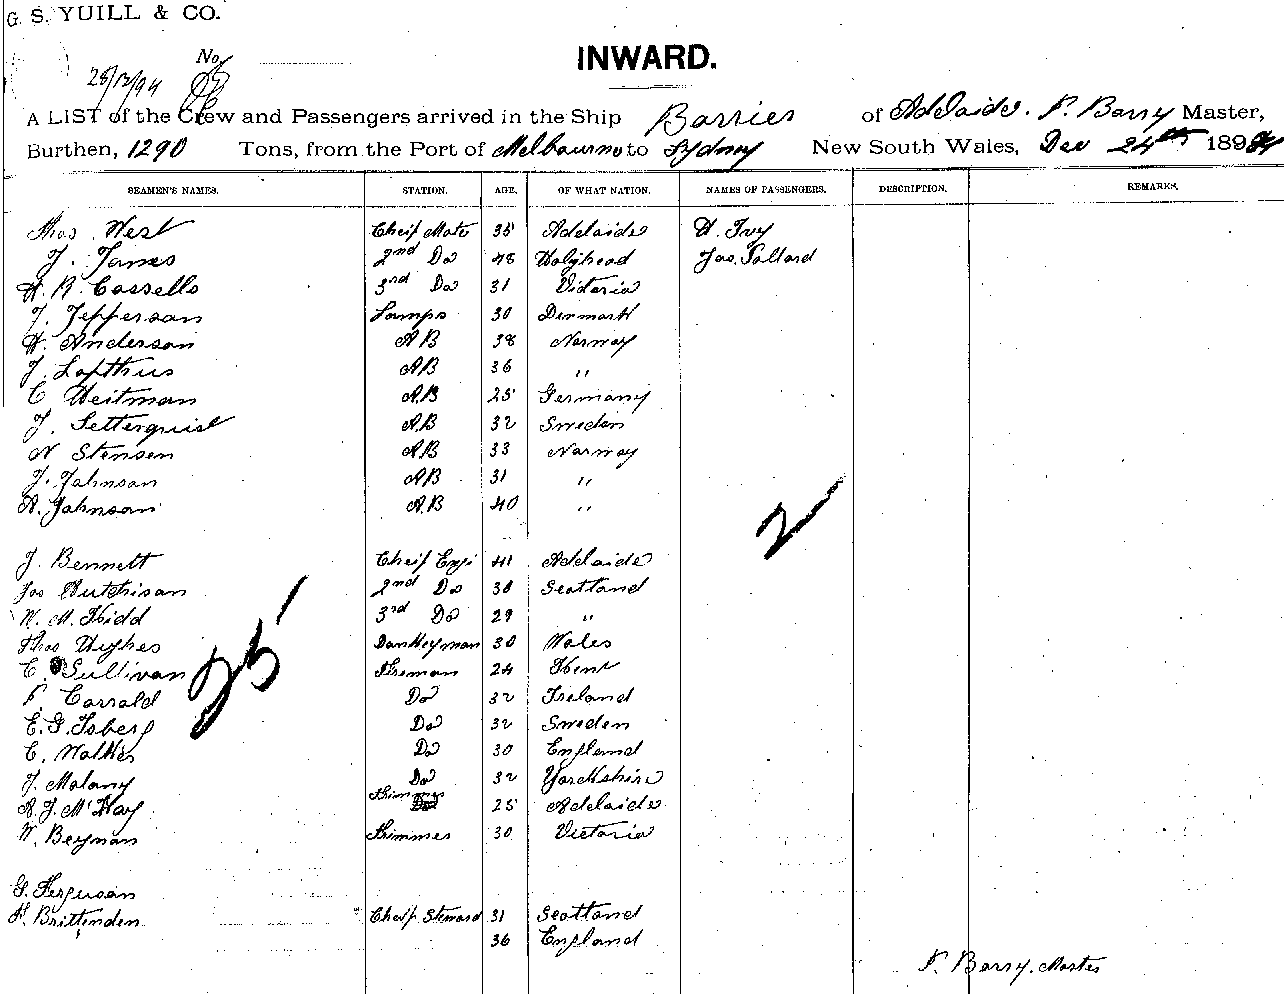 G. S. YUILL & CO.
No
28/12/94
INWARD.
A LIST of the Crew and Passengers arrived in the Ship Barrier of Adelaide. P. Barry Master,
Burthen, 1290 Tons, from the Port of Melbourne to Sydney New South Wales, Dec 24th 1894
SEAMEN'S NAMES. STATION. AGE. OF WHAT NATION. NAMES OF PASSENGERS. DESCRIPTION. REMARKS.
Thos. West Cheif Mate 35 Adelaide W. Ivy
J. James 2nd Do 48 Holyhead Jas. Pollard
H. R. Cassells 3rd Do 31 Victoria
J. Jepperson Lamps 30 Denmark
H. Anderson AB 38 Norway
J. Lofthus AB 36 "
C Weitman A.B 25 Germany
J. Setterquist A.B 32 Sweden
N Stensen A.B 33 Norway
J. Johnson AB 31 "
A. Johnson A.B 40 "
2
J. Bennett Cheif Engi 41 Adelaide
Jas Hutchison 2nd Do 38 Scotland
W. M. Kidd 3rd Do 29 "
Thos Hughes Donkeyman 30 Wales
C. Sullivan Fireman 24 Kent
P. Carrald Do 32 Ireland
25
E. G. Isberg Do 32 Sweden
C. Walker Do 30 England
J. Malony Do 32 Yorkshire
A. J. McKay Trimmer 25 Adelaide
W. Beyman Trimmer 30 Victoria
G. Ferguson
H. Brittenden Cheif Steward 31 Scotland
36 England
P. Barry. Master